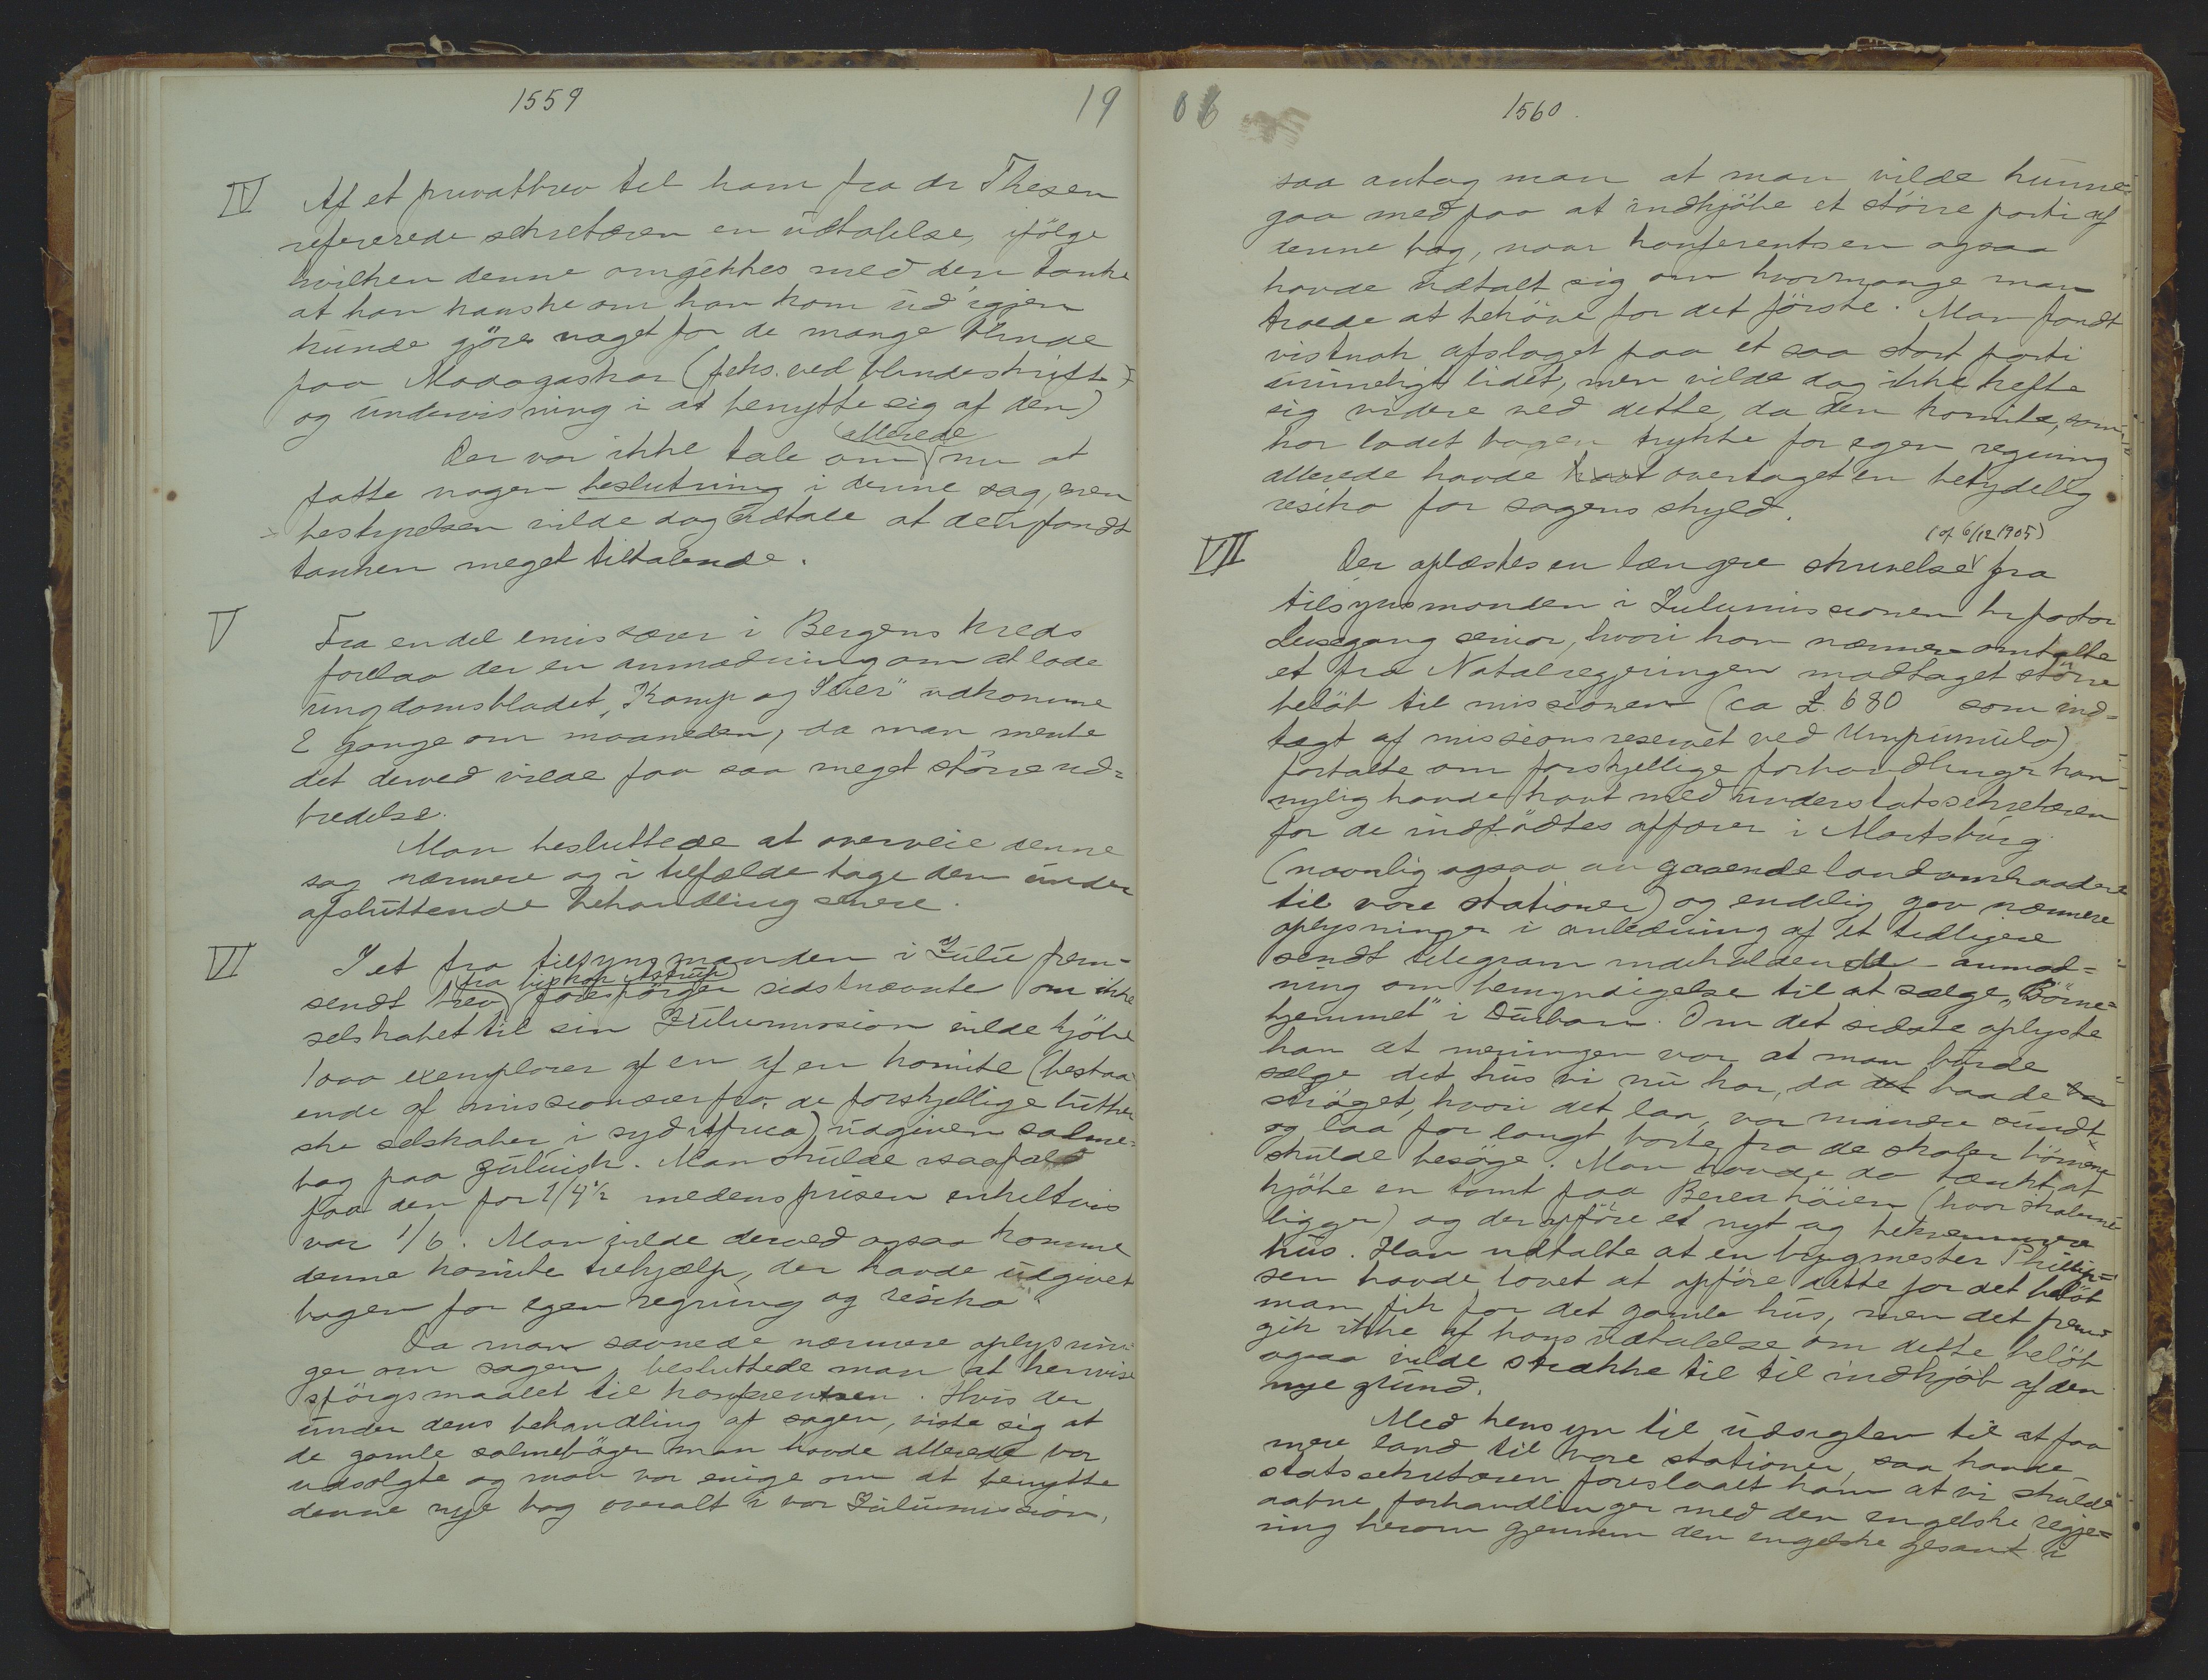 1559
19
IV Af et privatbrev til ham fra dr Thesen
refererede sekretæren en udtalelse, ifölge
hvilken denne omgikkes med den tanke
at han kanske om han kom ud igjen
kunde gjöre noget for de mange blinde
paa Madagaskar (f.eks. ved blindeskrift
og undervisning i at benytte sig af den)
Der var ikke tale om allerede nu at
fatte nogen beslutning i denne sag, men
bestyrelsen vilde dog udtale at den fandt
tanken meget tiltalende.
V Fra en del emissærer i Bergens kreds
forelaa der en anmodning om at lade
ungdomsbladet "Kamp og Seier" udkomme
2 gange om maaneden, da man mente
det derved vilde faa saa meget större ud=
bredelse.
Man besluttede at overveie denne
sag nærmere og i tilfælde tage den under
afsluttende behandling senere.
VI I et fra tilsynsmanden i Zulu frem-
sendt brev fra biskop Astrup forespörger sidstnævnte om ikke
selskabet til sin Zulumission vilde kjöbe
1000 exemplarer af en af en komite (bestaa
ende af missionærer fra de forskjellige luther
ske selskaber i syd Africa) udgiven salme=
bog paa zuluisk. Man skulde isaafald
faa den for 1/4½ medens prisen enkeltvis
var 1/6. Man vilde derved ogsaa komme
denne komite tilhjælp, der havde udgivet
bogen for egen regning og resiko.
Da man savnede nærmere oplysnin-
ger om sagen, besluttede man at henvise
spörgsmaalet til konferentsen. Hvis der
under dens behandling af sagen, viste sig at
de gamle salmeböger man havde allerede var
udsolgte og man var enige om at benytte
denne nye bog overalt i vor Zulumission,
06
1560.
saa antog man at man vilde kunne
gaa med paa at indkjöbe et större parti af
denne bog, naar konferentsen ogsaa
havde udtalt sig om hvormange man
troede at behöve for det förste. Man fandt
vistnok afslaget paa et saa stort parti
urimeligt lidet, men vilde dog ikke hefte
sig videre ved dette, da den komite, som
har ladet bogen trykke for egen regning
allerede havde havt overtaget en betydelig
resiko for sagens skyld.
VII Der oplæstes en længere skrivelse (af 6/12 1905) fra
tilsynsmanden i Zulumissionen hr pastor
Leisegang senior, hvori han nærmere omtalte
et fra Natalregjeringen modtaget större
belöb til missionen (ca £ 680 som ind=
tægt af missionsreservet ved Umpumulo)
fortalte om forskjellige forhandlinger han
nylig havde havt med understatssekretæren
for de indfödtes affærer i Maritsburg
(navnlig ogsaa angaaende landomraadere
til vore stationer) og endelig gav nærmere
oplysninger i anledning af et tidligere
sendt telegram indeholdende anmod=
ning om bemyndigelse til at sælge "Börne=
hjemmet" i Durban. Om det sidste oplyste
han at meningen var at man burde
sælge det hus vi nu har, da det baade var
ströget, hvori det laa, var mindre sundt
og laa for langt borte fra de skoler börnene
skulde besöge. Man havde da tænkt at
kjöbe en tomt paa Berea höien (hvor skolerne
ligger) og der opföre et nyt og bekvemmere
hus. Han udtalte at en bygmester Phillip=
sen havde lovet at opföre dette for det belöb
man fik for det gamle hus, men det frem
gik ikke af hans udtalelse om dette belöb
ogsaa vilde strække til til indkjöb af den
nye grund.
Med hensyn til udsigten til at faa
mere land til vore stationer, saa havde
statssekretæren foreslaaet ham at vi skulde
aabne forhandlinger med den engelske regje=
ring herom gjennem den engelske gesant i